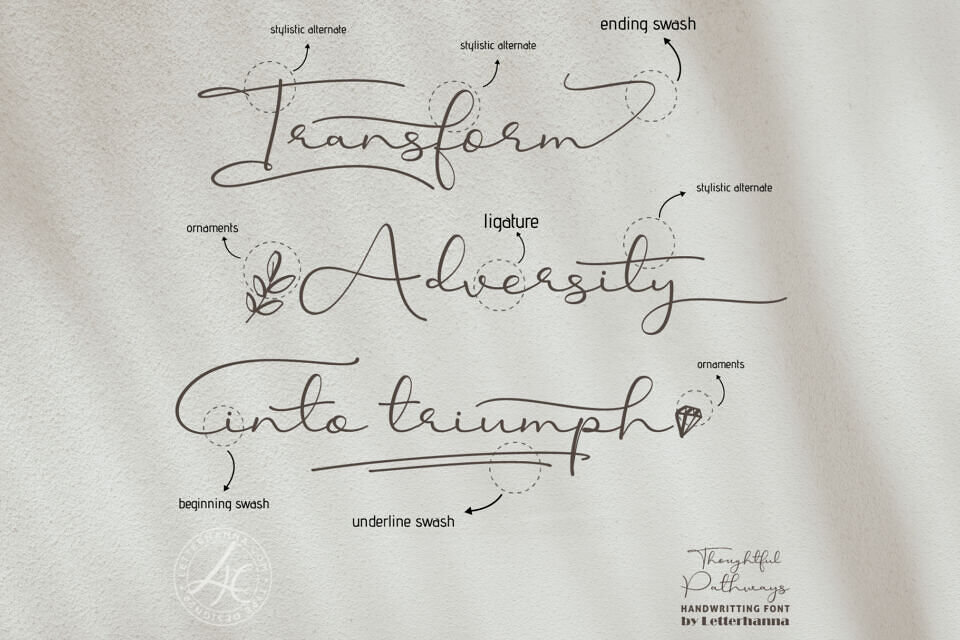 ending swash
stylistic alternate
stylistic alternate
Transform
stylistic alternate
ligature
ornaments
Adversity
ornaments
into triumph
beginning swash
underline swash
LETTERHANNA
Thoughtful
Pathways
HANDWRITTING FONT
by Letterhanna